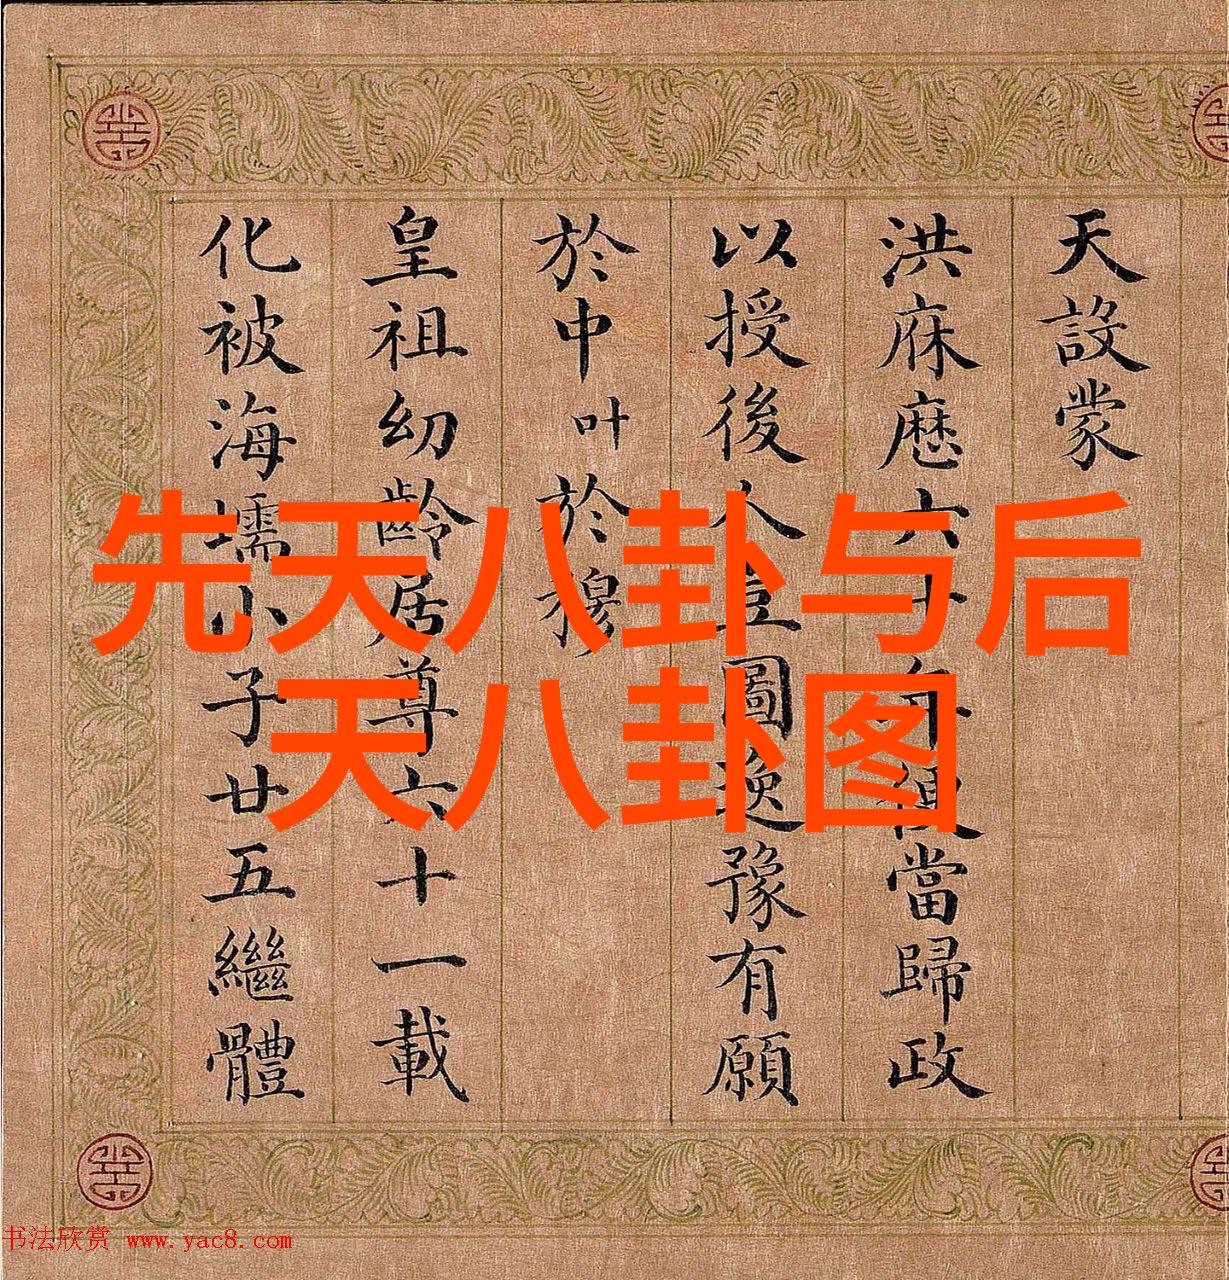 天設蒙
洪庥歷六十年便當歸政
以授後人豈圖逸豫有願
於中叶於穆
皇祖幼齡居尊六十一載
化被海壖小子廿五繼體
先天八卦与后
天八卦图
书法欣赏 www.yac8.com